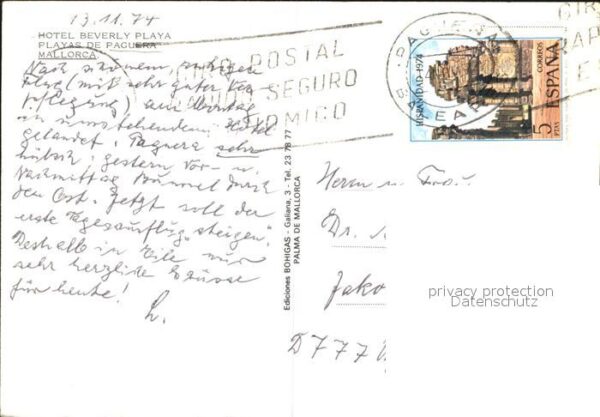 13.11.74
HOTEL BEVERLY PLAYA
PLAYAS DE PAGUERA
MALLORCA
Nach schönem, ruhigem
Flug (mit sehr guter Ver-
pflegung) am Montag
in umstehendem Hotel
gelandet. Paguera sehr
hübsch; gestern Vor- u.
Nachmittag Bummel durch
den Ort. Jetzt soll der
erste Tagesausflug "steigen".
Deshalb in Eile nur
sehr herzliche Grüsse
für heute!
h.
Ediciones BOHIGAS - Galiana, 3 - Tel. 23 78 77
PALMA DE MALLORCA
GIRO POSTAL
SEGURO
PAGUERA
BALEARES
HISPANIDAD-1974
CORREOS
ESPAÑA
5 PTAS
Herrn u. Frau
Dr.
Jako
D 777
privacy protection
Datenschutz